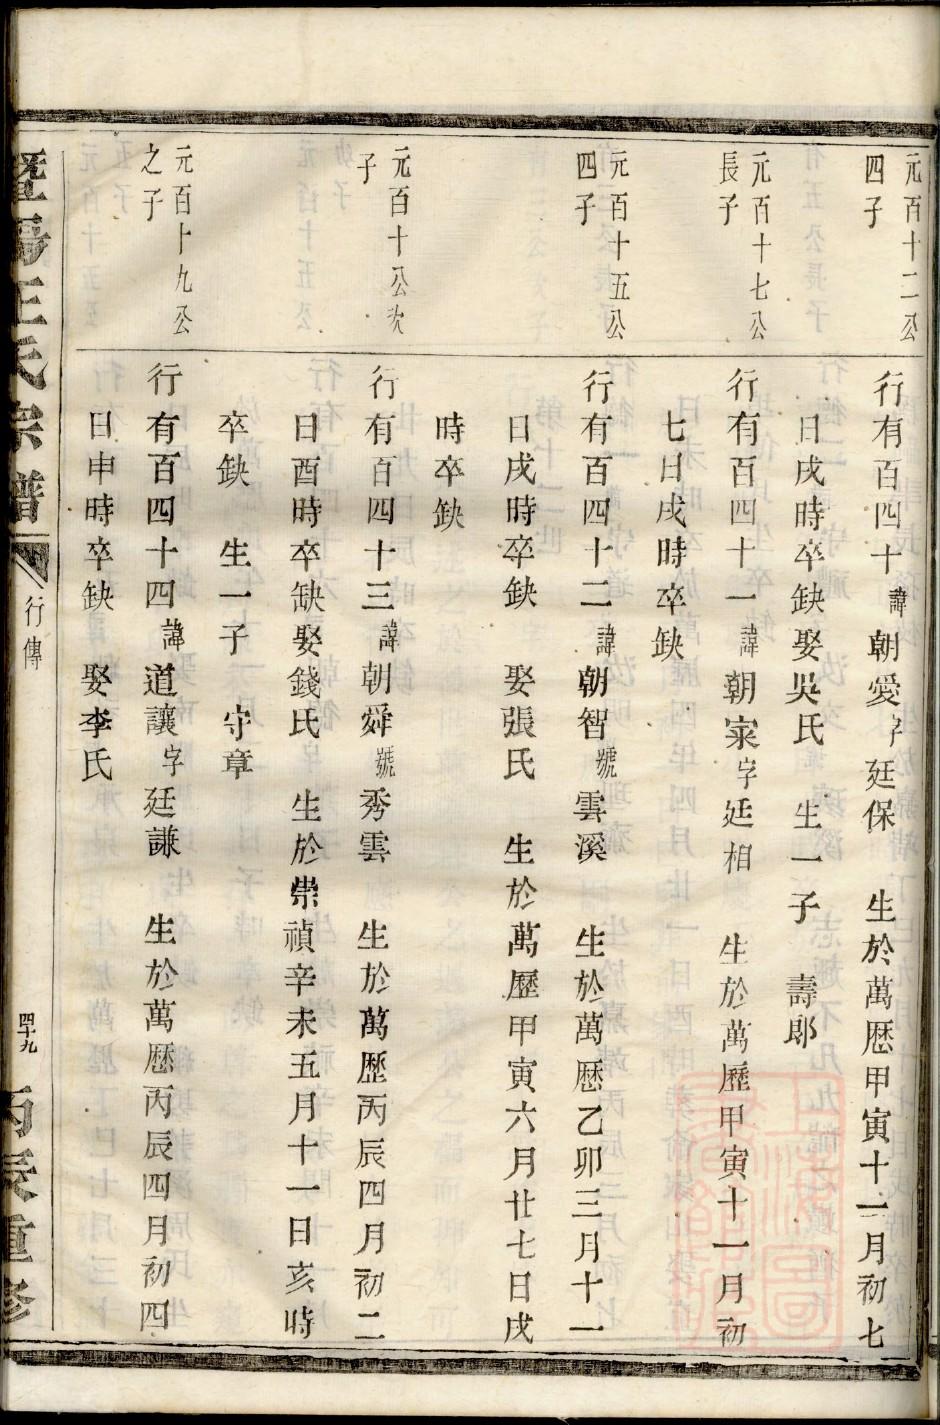 元百十二公
四子
行有百四十諱朝愛字廷保 生於萬曆甲寅十一月初七
日戌時卒缺娶吳氏 生一子 壽郎
元百十七公
長子
行有百四十一諱朝家字廷相 生於萬曆甲寅十一月初
七日戌時卒缺
元百十五公
四子
行有百四十二諱朝智號雲溪 生於萬曆乙卯三月十一
日戌時卒缺 娶張氏 生於萬曆甲寅六月廿七日戌
時卒缺
元百十公次
子
行有百四十三諱朝舜號秀雲 生於萬曆丙辰四月初二
日酉時卒缺娶錢氏 生於崇禎辛未五月十一日亥時
卒缺 生一子 守章
元百十九公
之子
行有百四十四諱道讓字廷謙 生於萬曆丙辰四月初四
日申時卒缺 娶李氏
暨陽王氏宗譜
行傳
四十九
丙辰重修